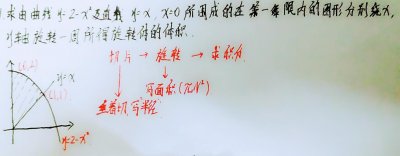 求由曲线 y=2-x²及直线 y=x, x=0 所围成的在第一象限内的图形分别绕x,
y轴旋转一周所得旋转体的体积.
切片 → 旋转 → 求积分
写面积(πr²)
(0,2)
y=x
(1,1)
y=2-x²